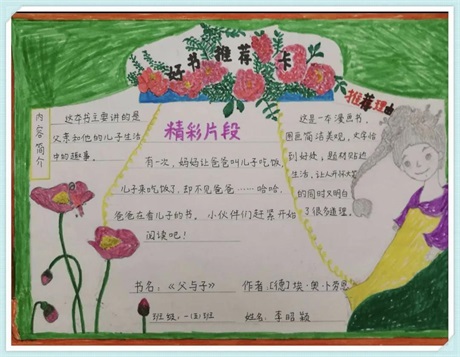 好书推荐卡
内容简介
这本书主要讲的是
父亲和他的儿子生活
中的趣事。
精彩片段
有一次,妈妈让爸爸叫儿子吃饭,
儿子来吃饭了,却不见爸爸……哈哈,
爸爸在看儿子的书。小伙伴们赶紧开始
阅读吧!
推荐理由
这是一本漫画书,
图画简洁美观,文字恰
到好处,题材贴近
生活,让人开怀大笑
的同时又明白
了很多道理。
书名:《父与子》 作者:[德]埃·奥·卜劳恩
班级:一(5)班 姓名:李昭颖